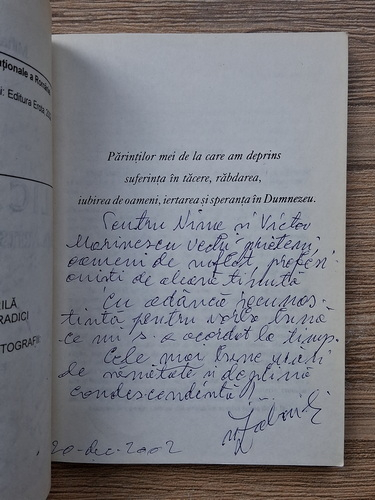 ționale a Român
i: Editura Enda 200
RILĂ
RADICI
TOGRAFII
Părinților mei de la care am deprins
suferința în tăcere, răbdarea,
iubirea de oameni, iertarea și speranța în Dumnezeu.
Pentru Nina și Victor
Marinescu vechi prieteni,
oameni de suflet, profesi-
oniști de aleasă ținută
Cu adâncă recunoș-
tință pentru vorba bună
ce mi s-a acordat la timp.
Cele mai bune urări
de sănătate și deplină
condescendență!
20-dec-2002